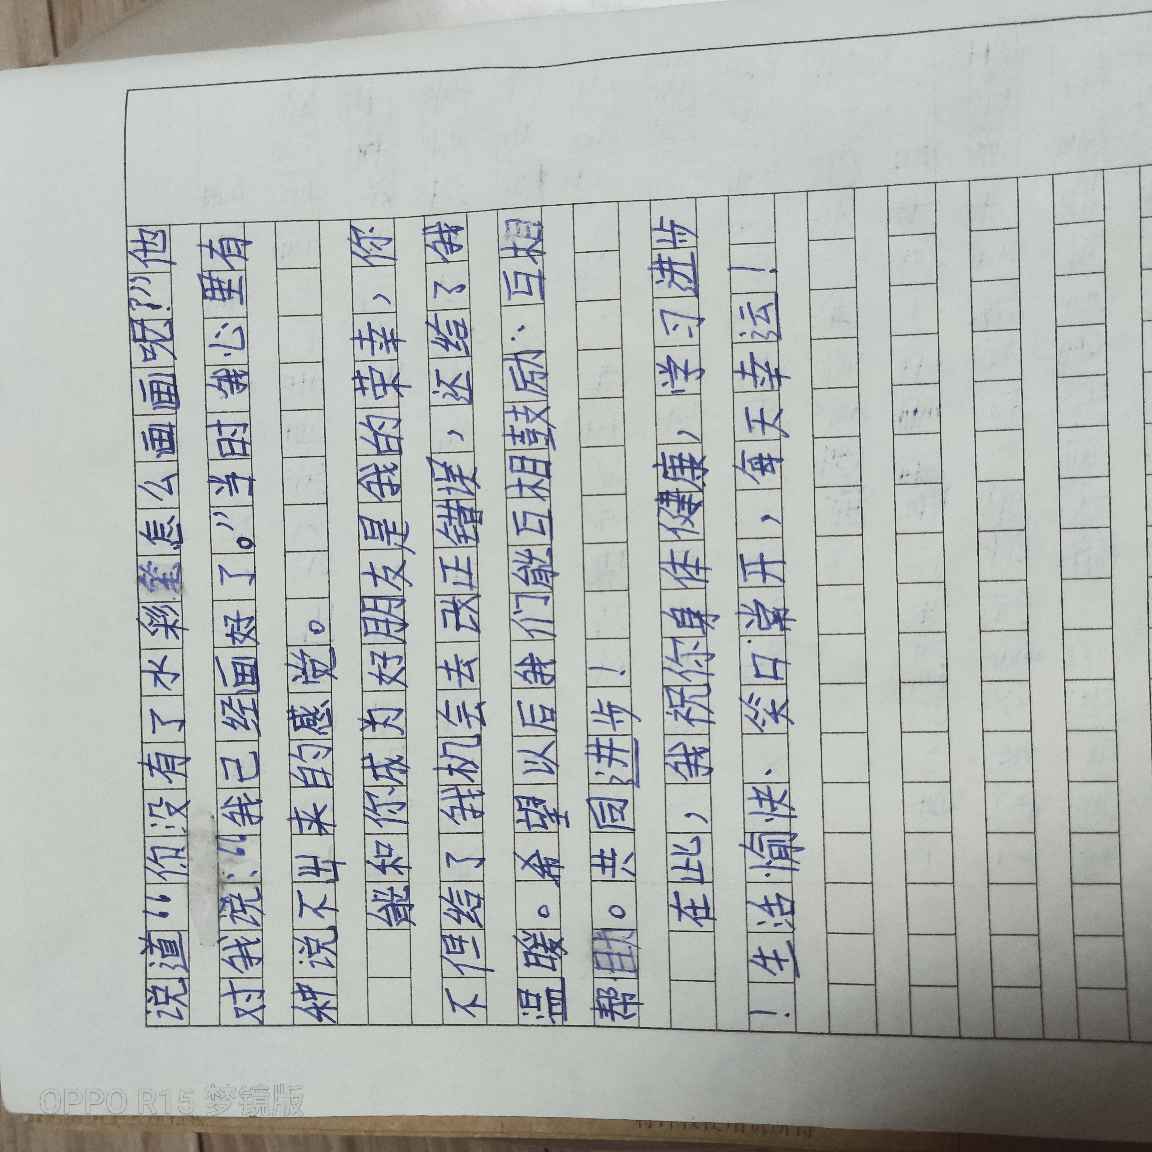 说道“你没有了水彩笔怎么画画呢？”他
对我说：“我已经画好了。”当时我心里有
种说不出来的感觉。
能和你成为好朋友是我的荣幸，你
不但给了我机会去改正错误，还给了我
温暖。希望以后我们能互相鼓励、互相
帮助。共同进步！
在此，我祝你身体健康，学习进步
！生活愉快.笑口常开，每天幸运！
OPPO R15 梦镜版